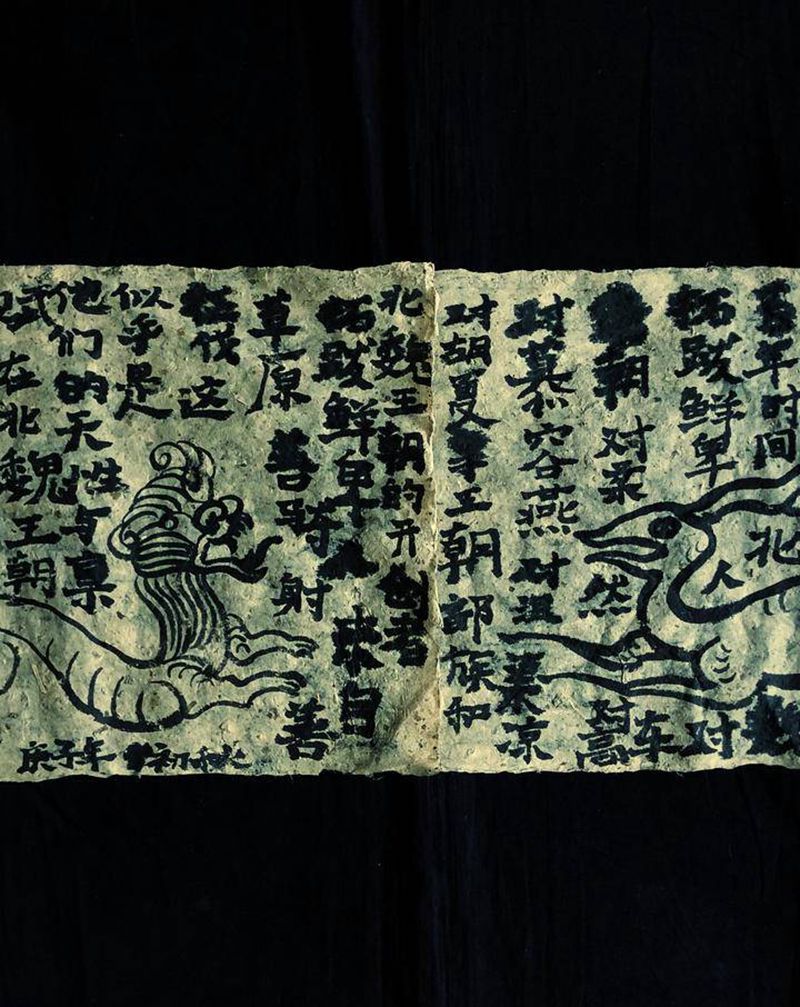 年时间 北
拓跋鲜卑 人 对
朝 对柔然 对高车
对慕容燕 对 秦凉
对胡夏等王朝 部族和
北魏王朝的开创者
拓跋鲜卑人 来自
草原 善骑射 善
征伐 这
似乎是
他们的天性与禀
赋 在北魏王朝
庚子年 初秋